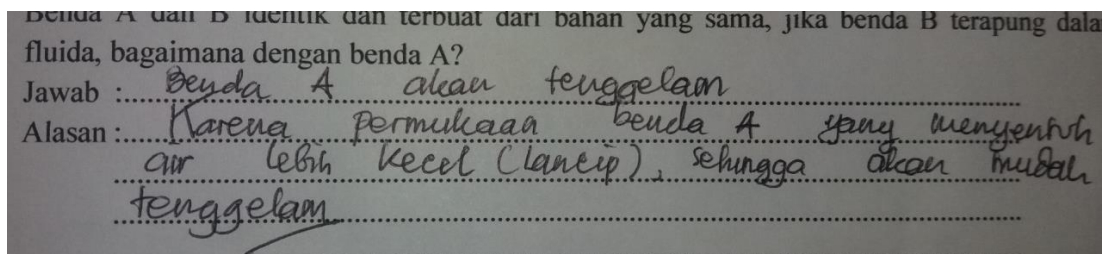 Benda A dan B identik dan terbuat dari bahan yang sama, jika benda B terapung dala
fluida, bagaimana dengan benda A?
Jawab : Benda A akan tenggelam
Alasan : Karena permukaan benda A yang menyentuh
air lebih kecil (lancip), sehingga akan mudah
tenggelam